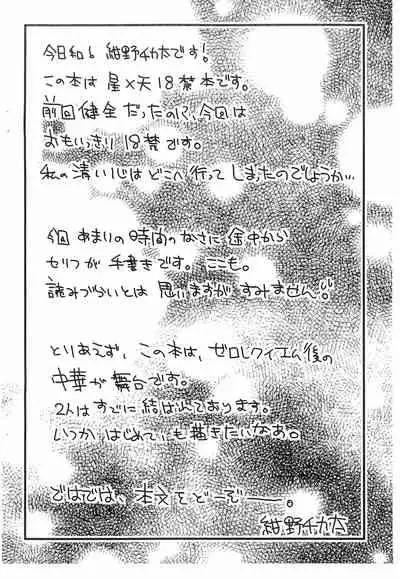 今日和!! 紺野チカ太です!
この本は 星×天 18禁本です。
前回健全だったのに、今回は
おもいっきり 18禁です。
私の清い心はどこへ行ってしまったのでしょうか…
今回 あまりの時間のなさに途中から
セリフが手書きです。ここも。
読みづらいとは思いますがすみません!!
とりあえず、この本は、ゼロレクイエム後の
中華が舞台です。
2人はすでに結ばれております。
いつか はじめて も描きたいなあ。
ではでは、本文をどーぞー。
紺野チカ太